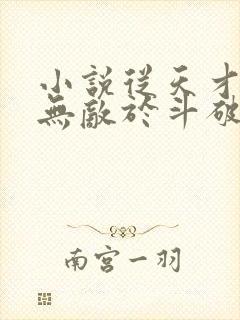 小說從天才
無敵於斗破
南宮一羽